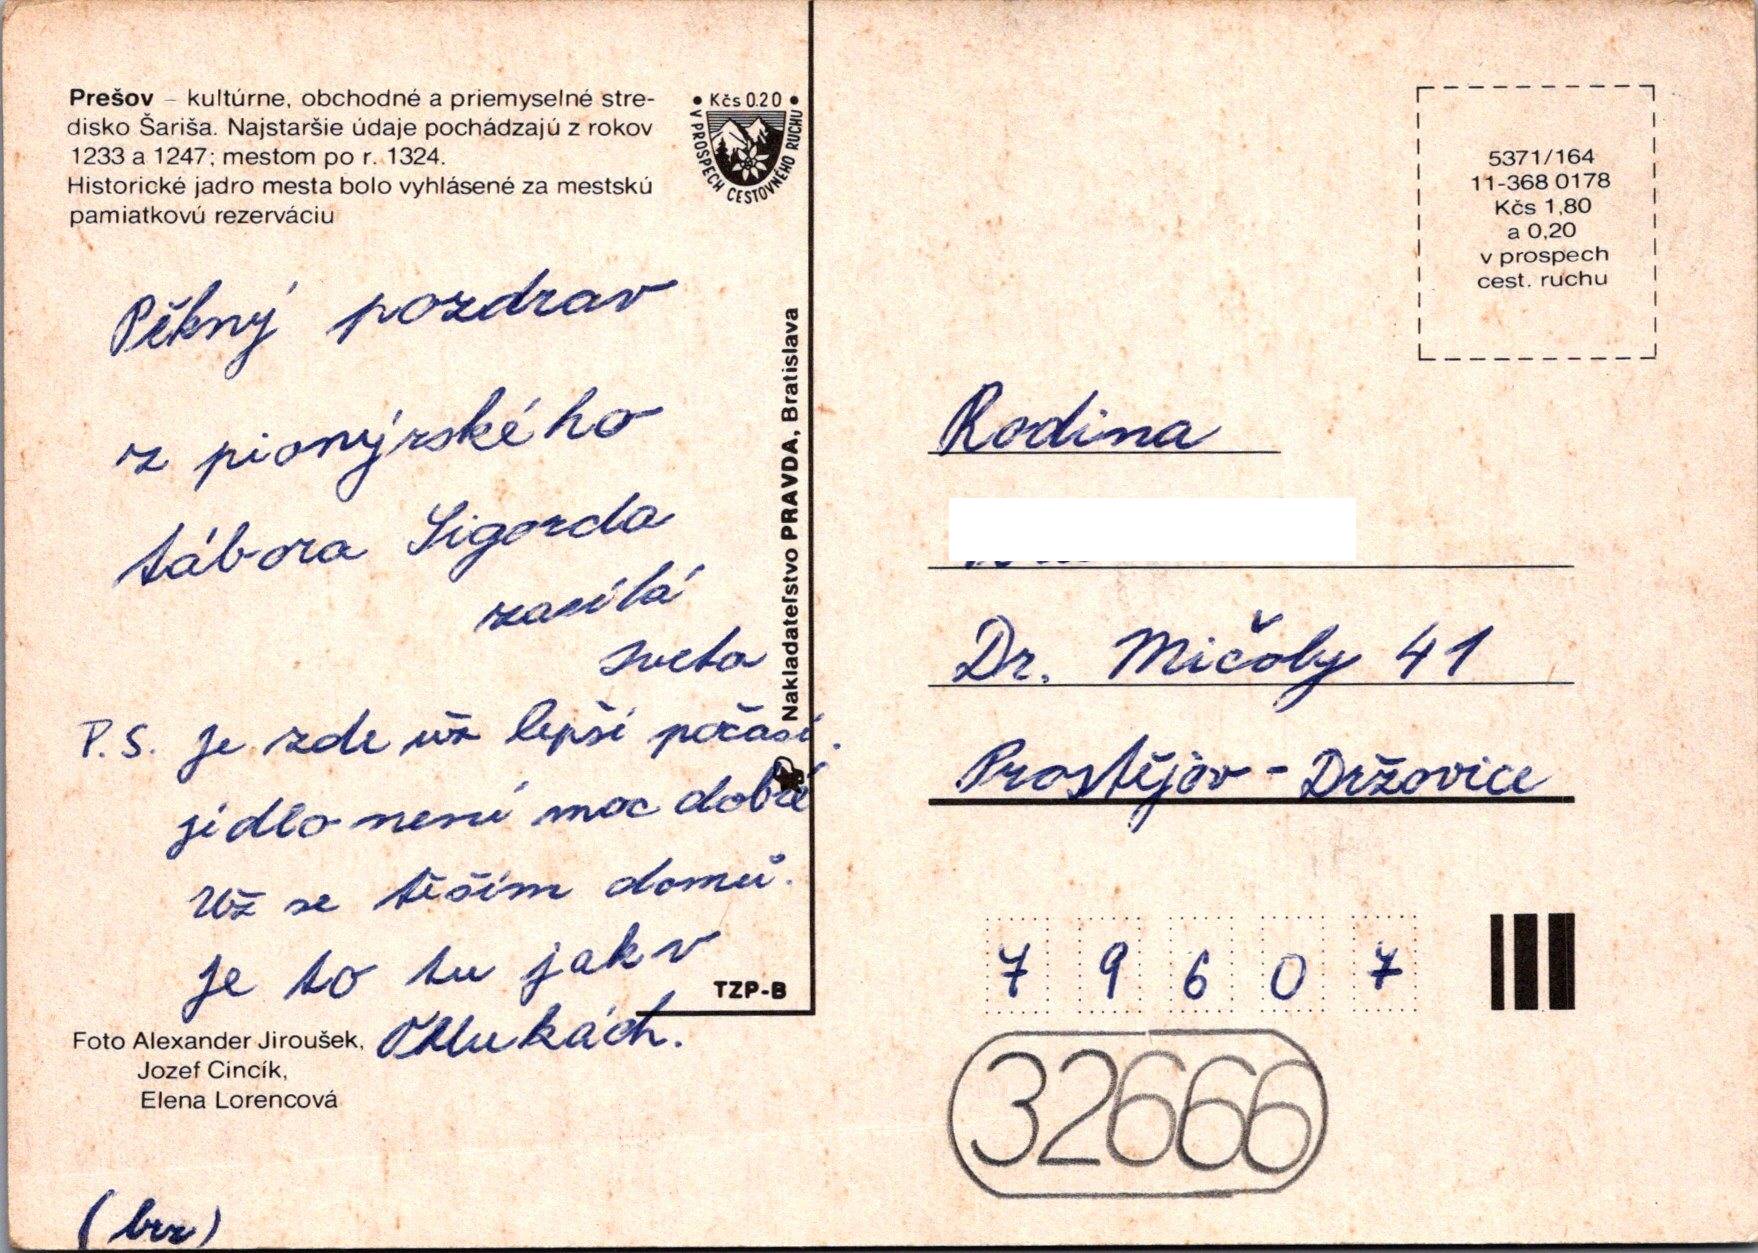 Prešov – kultúrne, obchodné a priemyselné stre-
disko Šariša. Najstaršie údaje pochádzajú z rokov
1233 a 1247; mestom po r. 1324.
Historické jadro mesta bolo vyhlásené za mestskú
pamiatkovú rezerváciu
• Kčs 0.20 •
V PROSPECH CESTOVNÉHO RUCHU
Pěkný pozdrav
z pionýrského
tábora Sigorda
zasílá
Sveta
P.S. Je zde už lepší počasí.
jídlo není moc dobré
Už se těším domů.
Je to tu jak v
Hlukách.
(brr)
Foto Alexander Jiroušek,
Jozef Cincík,
Elena Lorencová
TZP-B
Nakladateľstvo PRAVDA, Bratislava
5371/164
11-368 0178
Kčs 1,80
a 0,20
v prospech
cest. ruchu
Rodina
Dr. Mičoly 41
Prostějov - Držovice
79607
32666